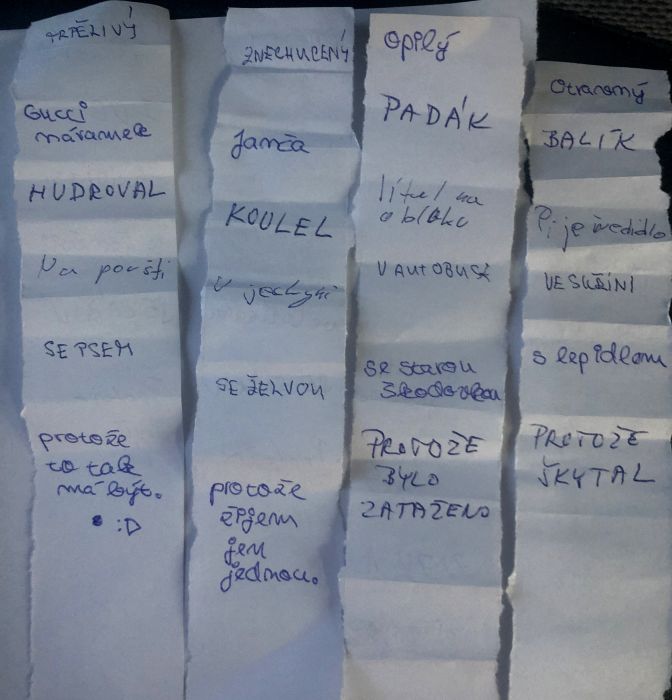 TRPĚLIVÝ
Gucci
náramek
HUDROVAL
Na poušti
SE PSEM
protože
to tak
má být.
:D
ZNECHUCENÝ
Janča
KOULEL
V jeskyni
SE ŽELVOU
protože
žijem
jen
jednou.
OPILÝ
PADÁK
lítal na
obláku
V AUTOBUSE
se starou
škodovkou
PROTOŽE
BYLO
ZATAŽENO
Otrávený
BALÍK
Pije ředidlo
VE SKŘÍNI
s lepidlem
PROTOŽE
ŠKYTAL